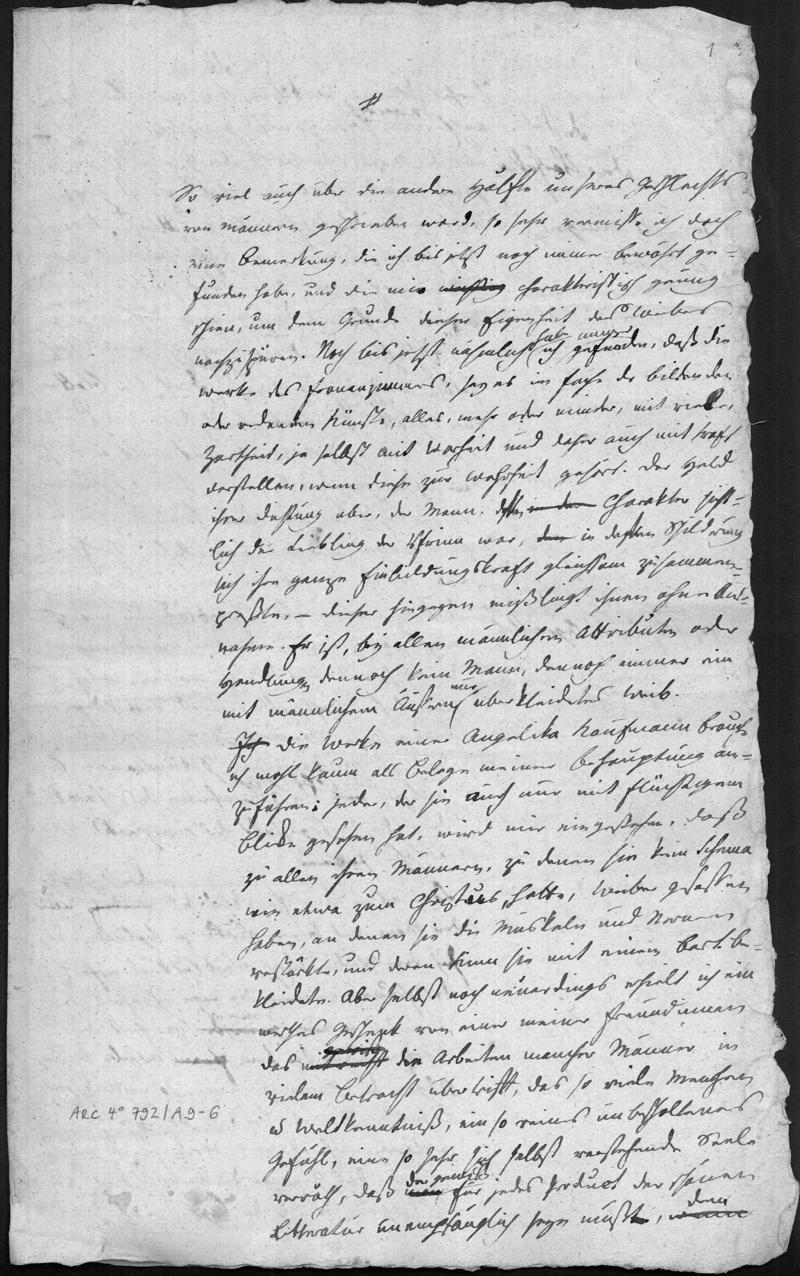 1
So viel auch über die andere Hälfte unseres Geschlechts
von Männern geschrieben ward, so sehr vermisse ich doch
eine Bemerkung, die ich bis jetzt noch immer bewährt ge-
funden habe, und die mir wichtig charakteristisch genug
schien, um dem Grunde dieser Eigenheit des Weibes
nachzuspüren. Noch bis jetzt nähmlich habe ich gefunden, daß die
Werke des Frauenzimmers, sey es im Fache der bildenden
oder redenden Künste, alles, mehr oder minder, mit vieler
Zartheit, ja selbst mit Warheit und daher auch mit Kraft
darstellen, wenn diese zur Wahrheit gehört. Der Held
ihrer Dichtung aber, der Mann, dessen in der Charakter sicht-
lich der Liebling der war, den in dessen Schilderung
sich ihre ganze Einbildungskraft gleichsam zusammen-
preßte, – dieser hingegen mißlingt ihnen ohne Aus-
nahme. Er ist, bey allen männlichen Attributen oder
Handlungen dennoch kein Mann, dennoch immer ein
mit männlichem nur überkleidetes Weib.
Ich die Werke einer Angelika Kaufmann brauche
ich wohl kaum als Belege meiner Behauptung an-
zuführen; jeder, der sie auch nur mit flüchtigem
Blicke gesehen hat, wird mir eingestehen, daß
zu allen ihren Männern, zu denen sie kein Schema
wie etwa zum Christus, hatte, Weiber gesessen
haben, an denen sie die Muskeln und Nerven
verstärkte, und deren Kinn sie mit einem Bart be-
kleidete. Aber selbst noch neuerdings erhielt ich ein
werthes Geschenk von einer meiner Freundinnen
das die Arbeiten mancher Männer in
vielem Betracht übertrifft, das so viele Menschen
u Weltkenntniß, ein so reines unbescholtenes
Gefühl, eine so sehr sich selbst verstehende Seele
verräth, daß der gewiß für jedes Product der schönen
Litteratur unempfänglich seyn müßte, dem
ARC 4° 792/A9-6